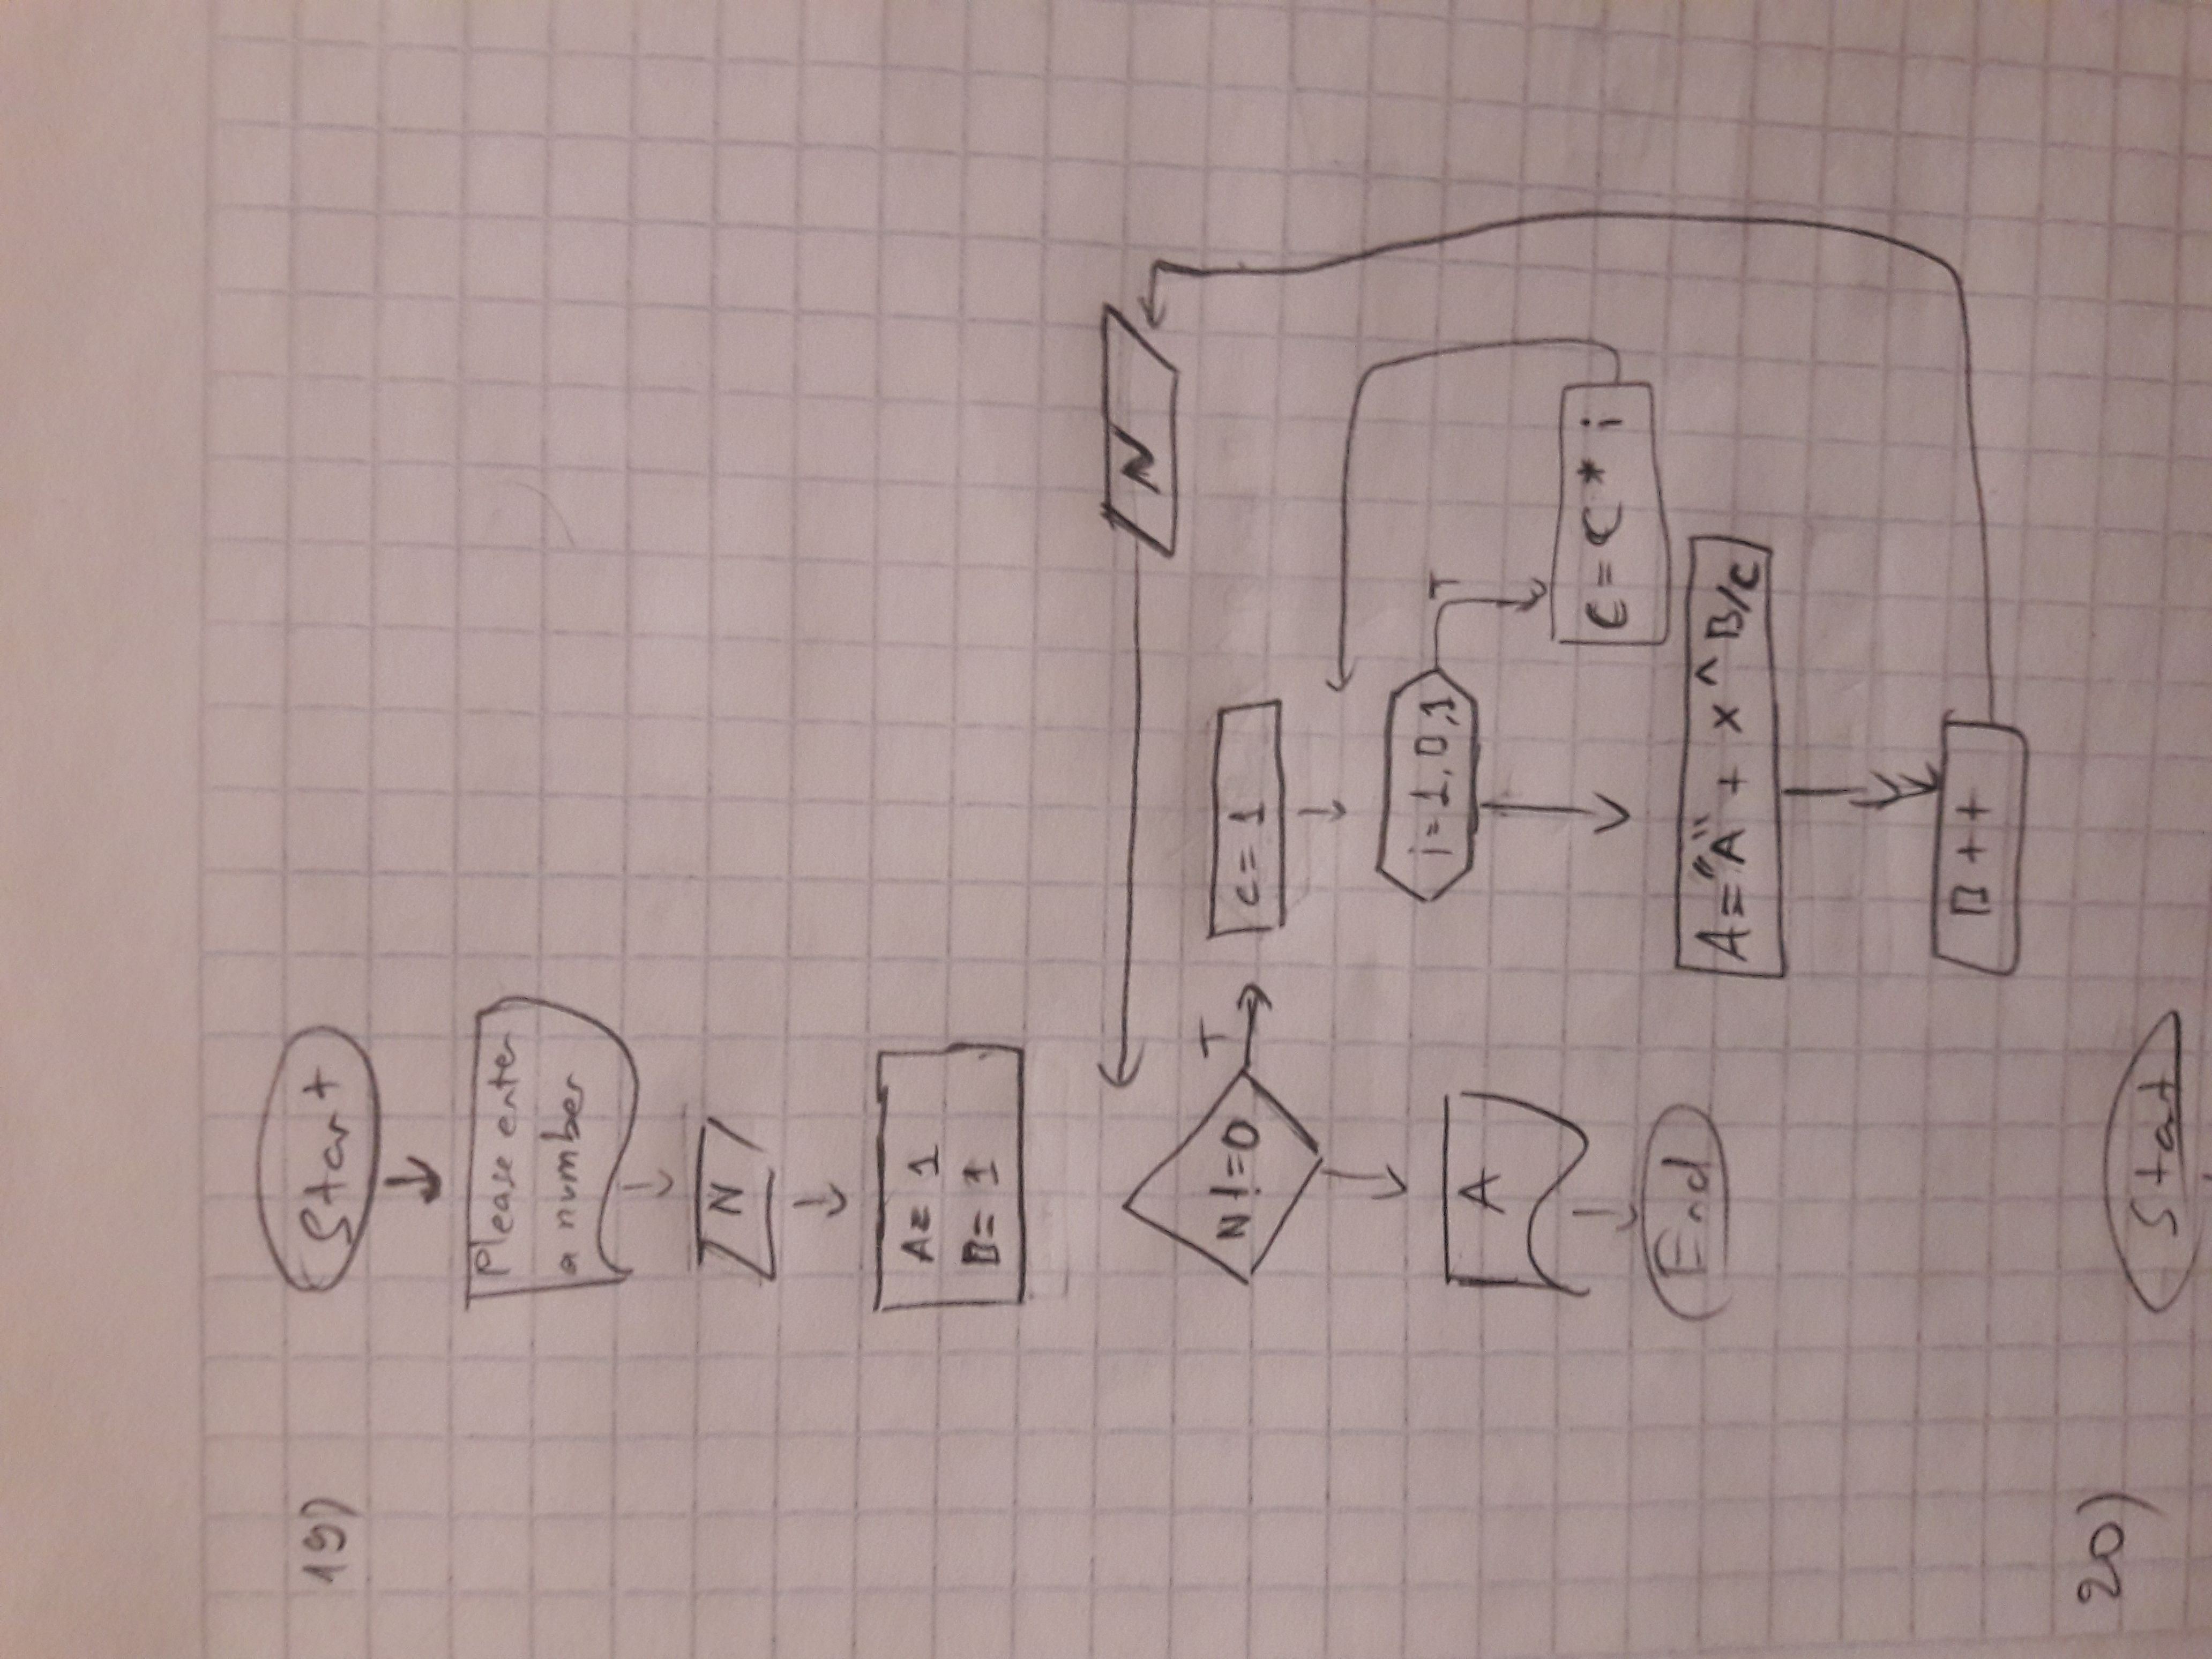 19)
Start
Please enter
a number
N
A= 1
B= 1
N
N!=0
T
c= 1
i=1,0,1
T
A
C=C * i
End
A="A" + x^B/c
B++
20)
Start